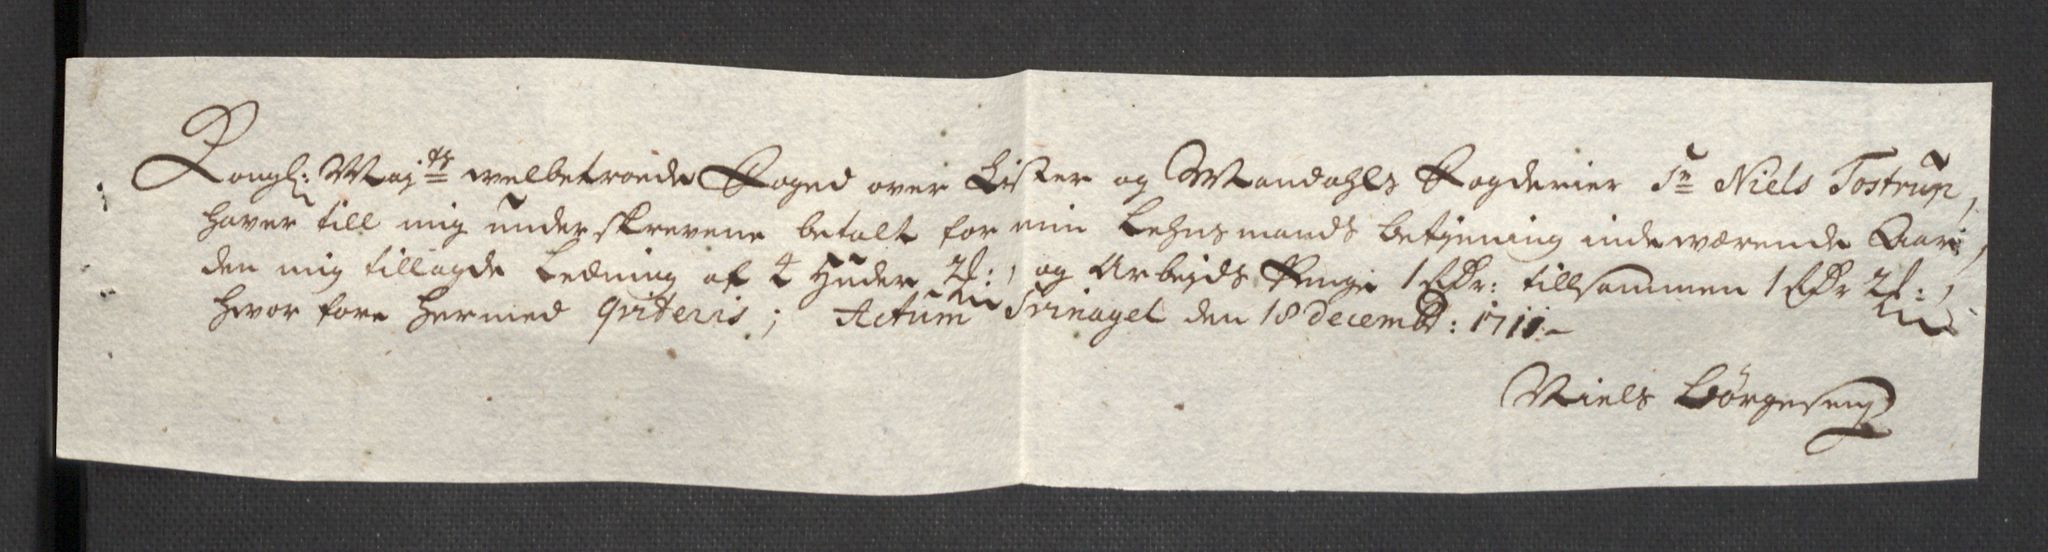 Kongl: Maj:ts welbetroede Foged over Lister og Mandahls Fogderier Sr Niels Tostrup,
hawer till mig underskrevene betalt for min Lehnsmands betjening indeværende Aar,
den mig tillagde Ledning af 4 Huder 2 og Arbejds Penge 1 Rdr: tillsammen 1 Rdr 2
hvor fore hermed qviteris; Actum Svinagel den 18 Decemb: 1711
Niels Børgesen